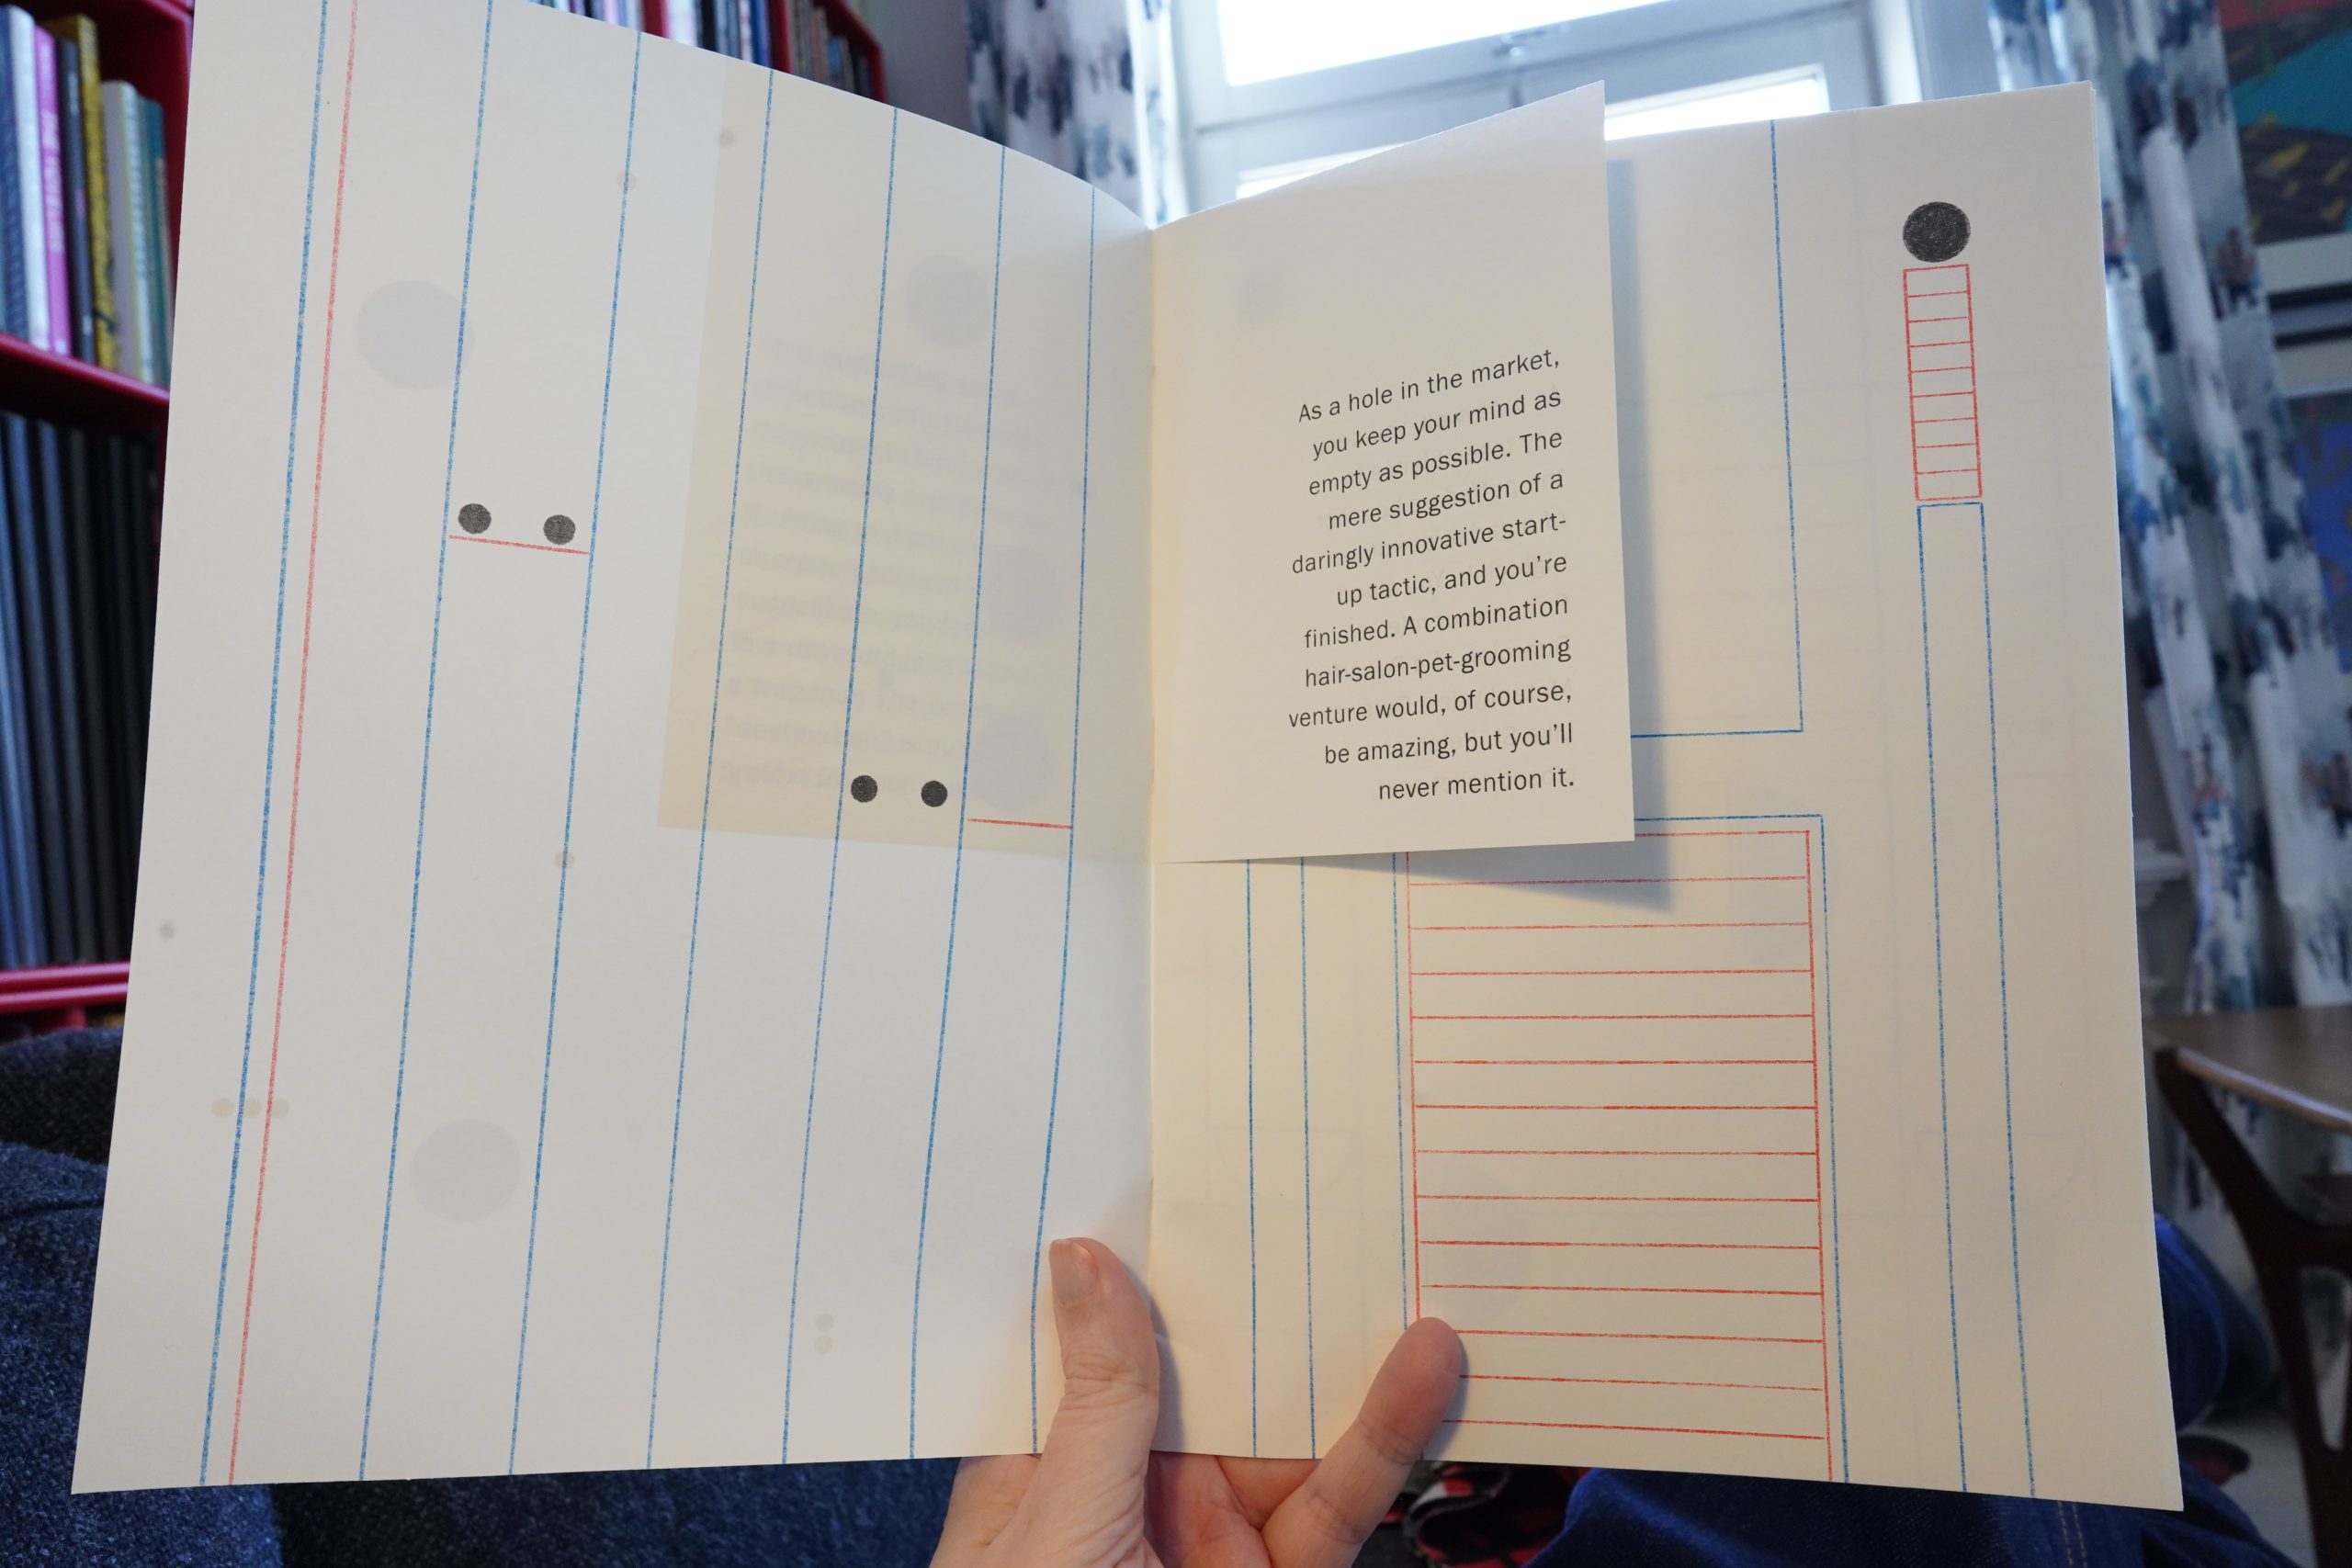 As a hole in the market,
you keep your mind as
empty as possible. The
mere suggestion of a
daringly innovative start-
up tactic, and you're
finished. A combination
hair-salon-pet-grooming
venture would, of course,
be amazing, but you'll
never mention it.